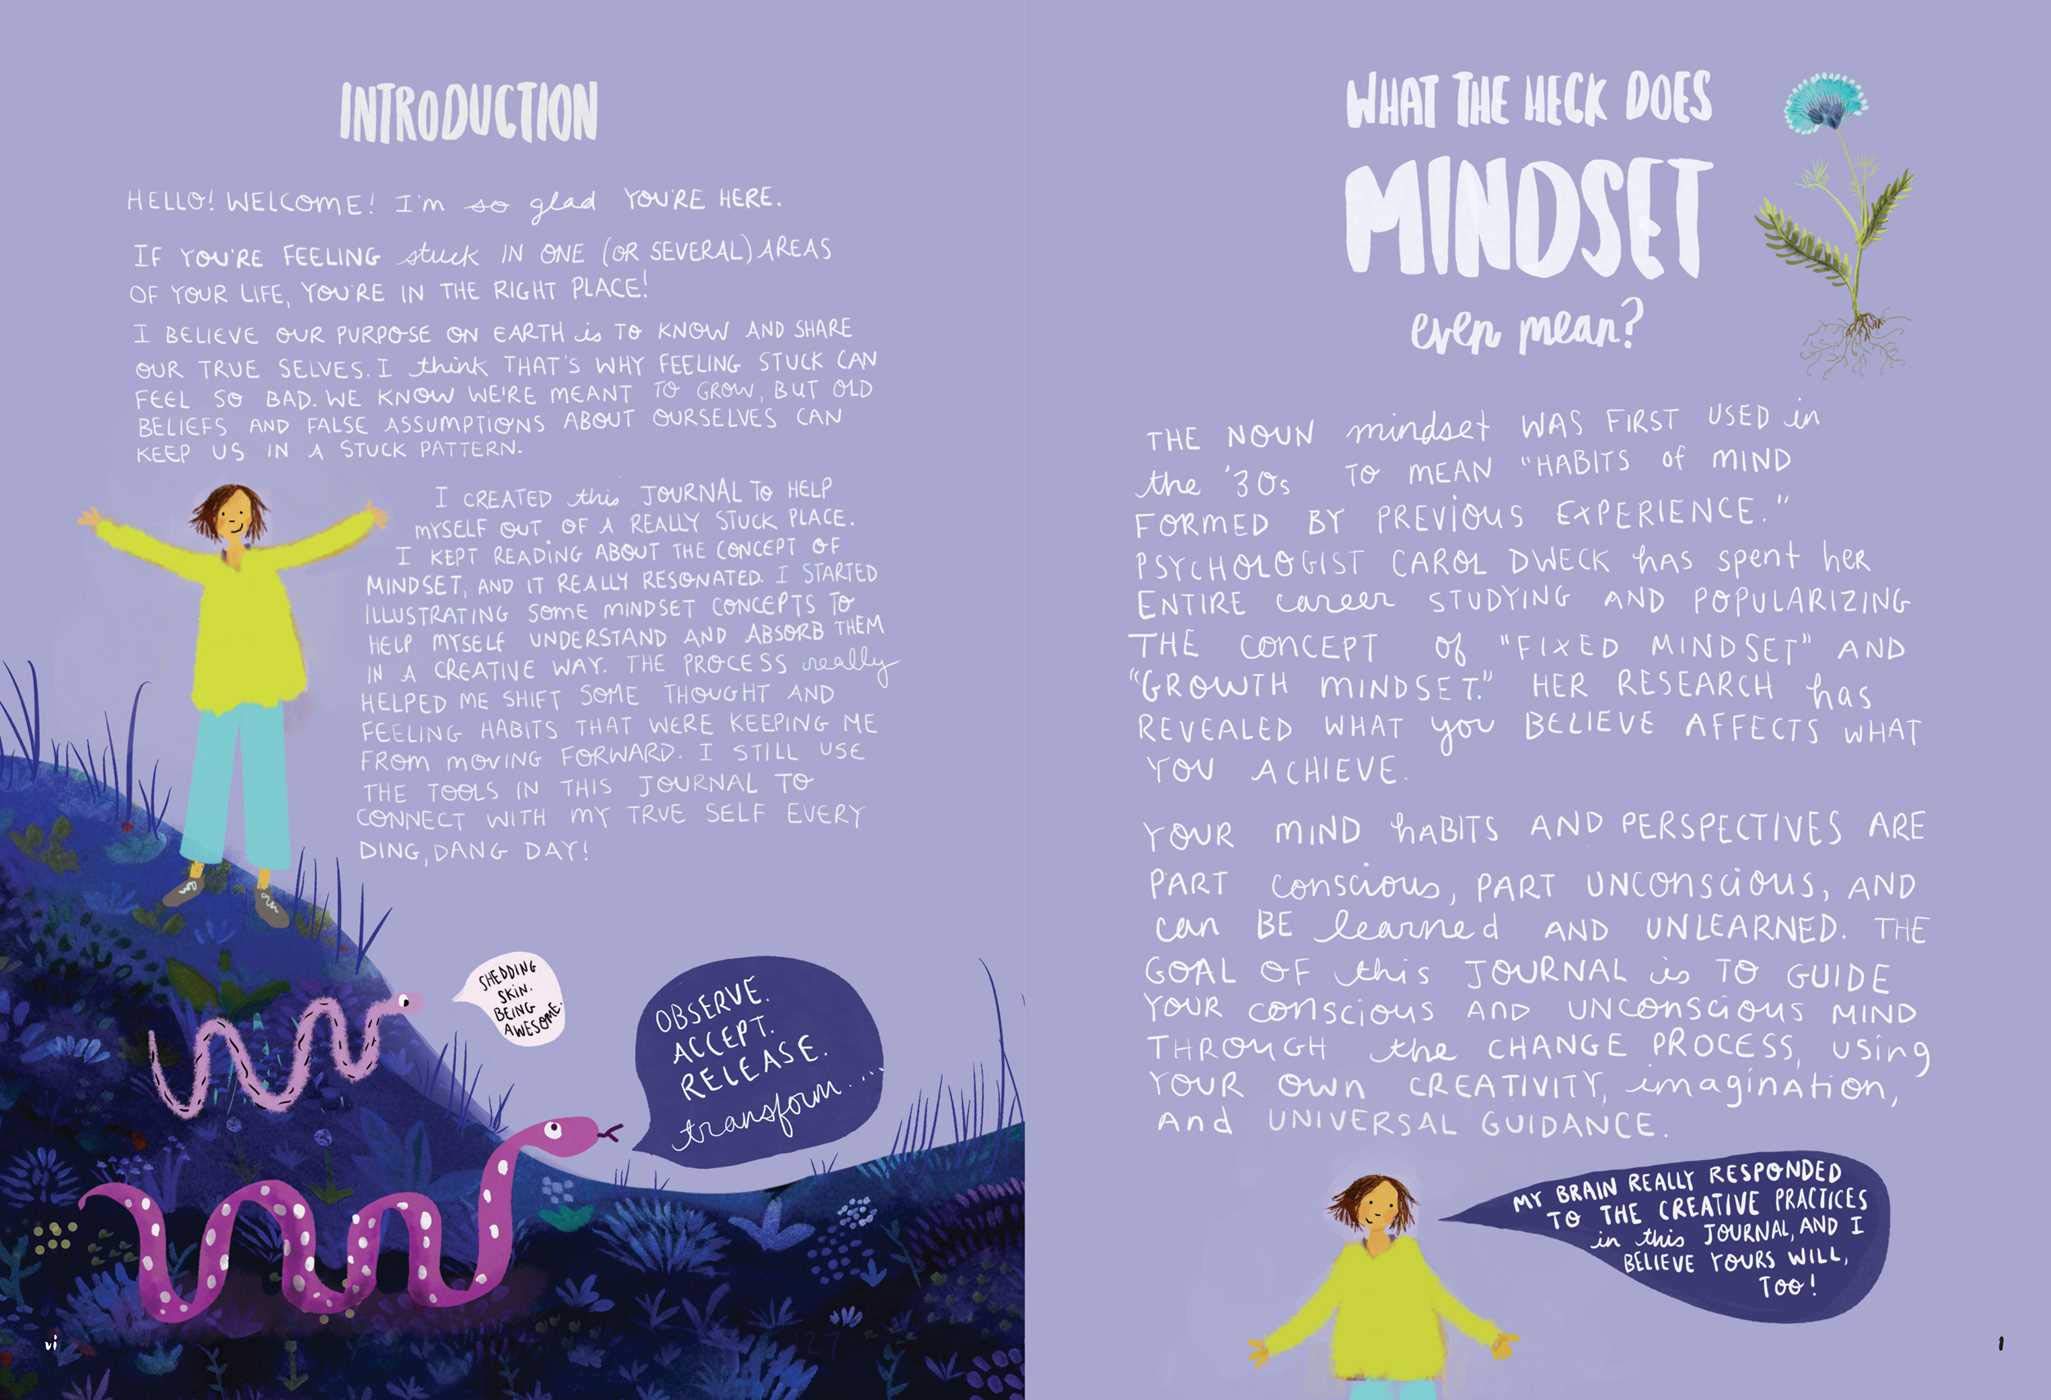 INTRODUCTION
HELLO! WELCOME! I'm so glad YOU'RE HERE.
IF YOU'RE FEELING stuck IN ONE (OR SEVERAL) AREAS
OF YOUR LIFE, YOU'RE IN THE RIGHT PLACE!
I BELIEVE OUR PURPOSE ON EARTH is TO KNOW AND SHARE
OUR TRUE SELVES. I think THAT'S WHY FEELING STUCK CAN
FEEL SO BAD. WE KNOW WE'RE MEANT TO GROW, BUT OLD
BELIEFS AND FALSE ASSUMPTIONS ABOUT OURSELVES CAN
KEEP US IN A STUCK PATTERN.
I CREATED this JOURNAL TO HELP
MYSELF OUT OF A REALLY STUCK PLACE.
I KEPT READING ABOUT THE CONCEPT OF
MINDSET, AND IT REALLY RESONATED. I STARTED
ILLUSTRATING SOME MINDSET CONCEPTS TO
HELP MYSELF UNDERSTAND AND ABSORB THEM
IN A CREATIVE WAY. THE PROCESS really
HELPED ME SHIFT SOME THOUGHT AND
FEELING HABITS THAT WERE KEEPING ME
FROM MOVING FORWARD. I STILL USE
THE TOOLS IN THIS JOURNAL TO
CONNECT WITH MY TRUE SELF EVERY
DING, DANG DAY!
SHEDDING
SKIN.
BEING
AWESOME.
OBSERVE.
ACCEPT.
RELEASE.
transform....
vi
WHAT THE HECK DOES
MINDSET
even mean?
THE NOUN mindset WAS FIRST USED in
the '30s TO MEAN "HABITS of MIND
FORMED BY PREVIOUS EXPERIENCE."
PSYCHOLOGIST CAROL DWECK has spent her
ENTIRE career STUDYING AND POPULARIZING
THE CONCEPT of "FIXED MINDSET" AND
"GROWTH MINDSET." HER RESEARCH has
REVEALED WHAT you BELIEVE AFFECTS WHAT
YOU ACHIEVE.
YOUR MIND HABITS AND PERSPECTIVES ARE
PART conscious, PART UNCONSCIOUS, AND
can BE learned AND UNLEARNED. THE
GOAL OF this JOURNAL is TO GUIDE
YOUR conscious AND UNCONSCIOUS MIND
THROUGH the CHANGE PROCESS, using
YOUR own CREATIVITY, imagination,
And UNIVERSAL GUIDANCE.
MY BRAIN REALLY RESPONDED
TO THE CREATIVE PRACTICES
in this JOURNAL, AND I
BELIEVE YOURS WILL,
TOO!
1